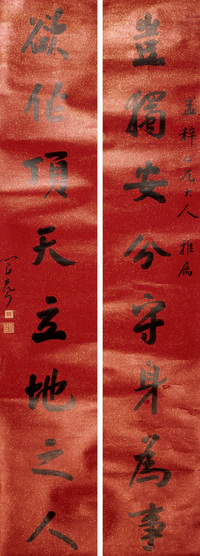 豈獨安分守身為事
孟梓仁兄大人 雅屬
欲作頂天立地之人